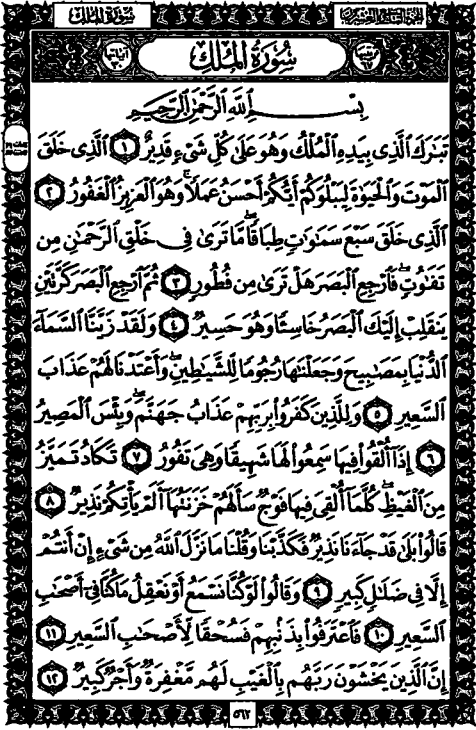 سُورَةُ المُلْكِ
سُورَةُ المُلْكِ
آيَاتُهَا ٣٠
بِسْمِ ٱللَّهِ ٱلرَّحْمَٰنِ ٱلرَّحِيمِ
تَبَٰرَكَ ٱلَّذِى بِيَدِهِ ٱلْمُلْكُ وَهُوَ عَلَىٰ كُلِّ شَىْءٍ قَدِيرٌ ١ ٱلَّذِى خَلَقَ
ٱلْمَوْتَ وَٱلْحَيَوٰةَ لِيَبْلُوَكُمْ أَيُّكُمْ أَحْسَنُ عَمَلًا ۚ وَهُوَ ٱلْعَزِيزُ ٱلْغَفُورُ ٢
ٱلَّذِى خَلَقَ سَبْعَ سَمَٰوَٰتٍ طِبَاقًا ۖ مَّا تَرَىٰ فِى خَلْقِ ٱلرَّحْمَٰنِ مِن
تَفَٰوُتٍ ۖ فَٱرْجِعِ ٱلْبَصَرَ هَلْ تَرَىٰ مِن فُطُورٍ ٣ ثُمَّ ٱرْجِعِ ٱلْبَصَرَ كَرَّتَيْنِ
يَنقَلِبْ إِلَيْكَ ٱلْبَصَرُ خَاسِئًا وَهُوَ حَسِيرٌ ٤ وَلَقَدْ زَيَّنَّا ٱلسَّمَآءَ
ٱلدُّنْيَا بِمَصَٰبِيحَ وَجَعَلْنَٰهَا رُجُومًا لِّلشَّيَٰطِينِ ۖ وَأَعْتَدْنَا لَهُمْ عَذَابَ
ٱلسَّعِيرِ ٥ وَلِلَّذِينَ كَفَرُوا۟ بِرَبِّهِمْ عَذَابُ جَهَنَّمَ ۖ وَبِئْسَ ٱلْمَصِيرُ
٦ إِذَآ أُلْقُوا۟ فِيهَا سَمِعُوا۟ لَهَا شَهِيقًا وَهِىَ تَفُورُ ٧ تَكَادُ تَمَيَّزُ
مِنَ ٱلْغَيْظِ ۖ كُلَّمَآ أُلْقِىَ فِيهَا فَوْجٌ سَأَلَهُمْ خَزَنَتُهَآ أَلَمْ يَأْتِكُمْ نَذِيرٌ ٨
قَالُوا۟ بَلَىٰ قَدْ جَآءَنَا نَذِيرٌ فَكَذَّبْنَا وَقُلْنَا مَا نَزَّلَ ٱللَّهُ مِن شَىْءٍ إِنْ أَنتُمْ
إِلَّا فِى ضَلَٰلٍ كَبِيرٍ ٩ وَقَالُوا۟ لَوْ كُنَّا نَسْمَعُ أَوْ نَعْقِلُ مَا كُنَّا فِىٓ أَصْحَٰبِ
ٱلسَّعِيرِ ١٠ فَٱعْتَرَفُوا۟ بِذَنۢبِهِمْ فَسُحْقًا لِّأَصْحَٰبِ ٱلسَّعِيرِ ١١
إِنَّ ٱلَّذِينَ يَخْشَوْنَ رَبَّهُم بِٱلْغَيْبِ لَهُم مَّغْفِرَةٌ وَأَجْرٌ كَبِيرٌ ١٢
٥٦٢